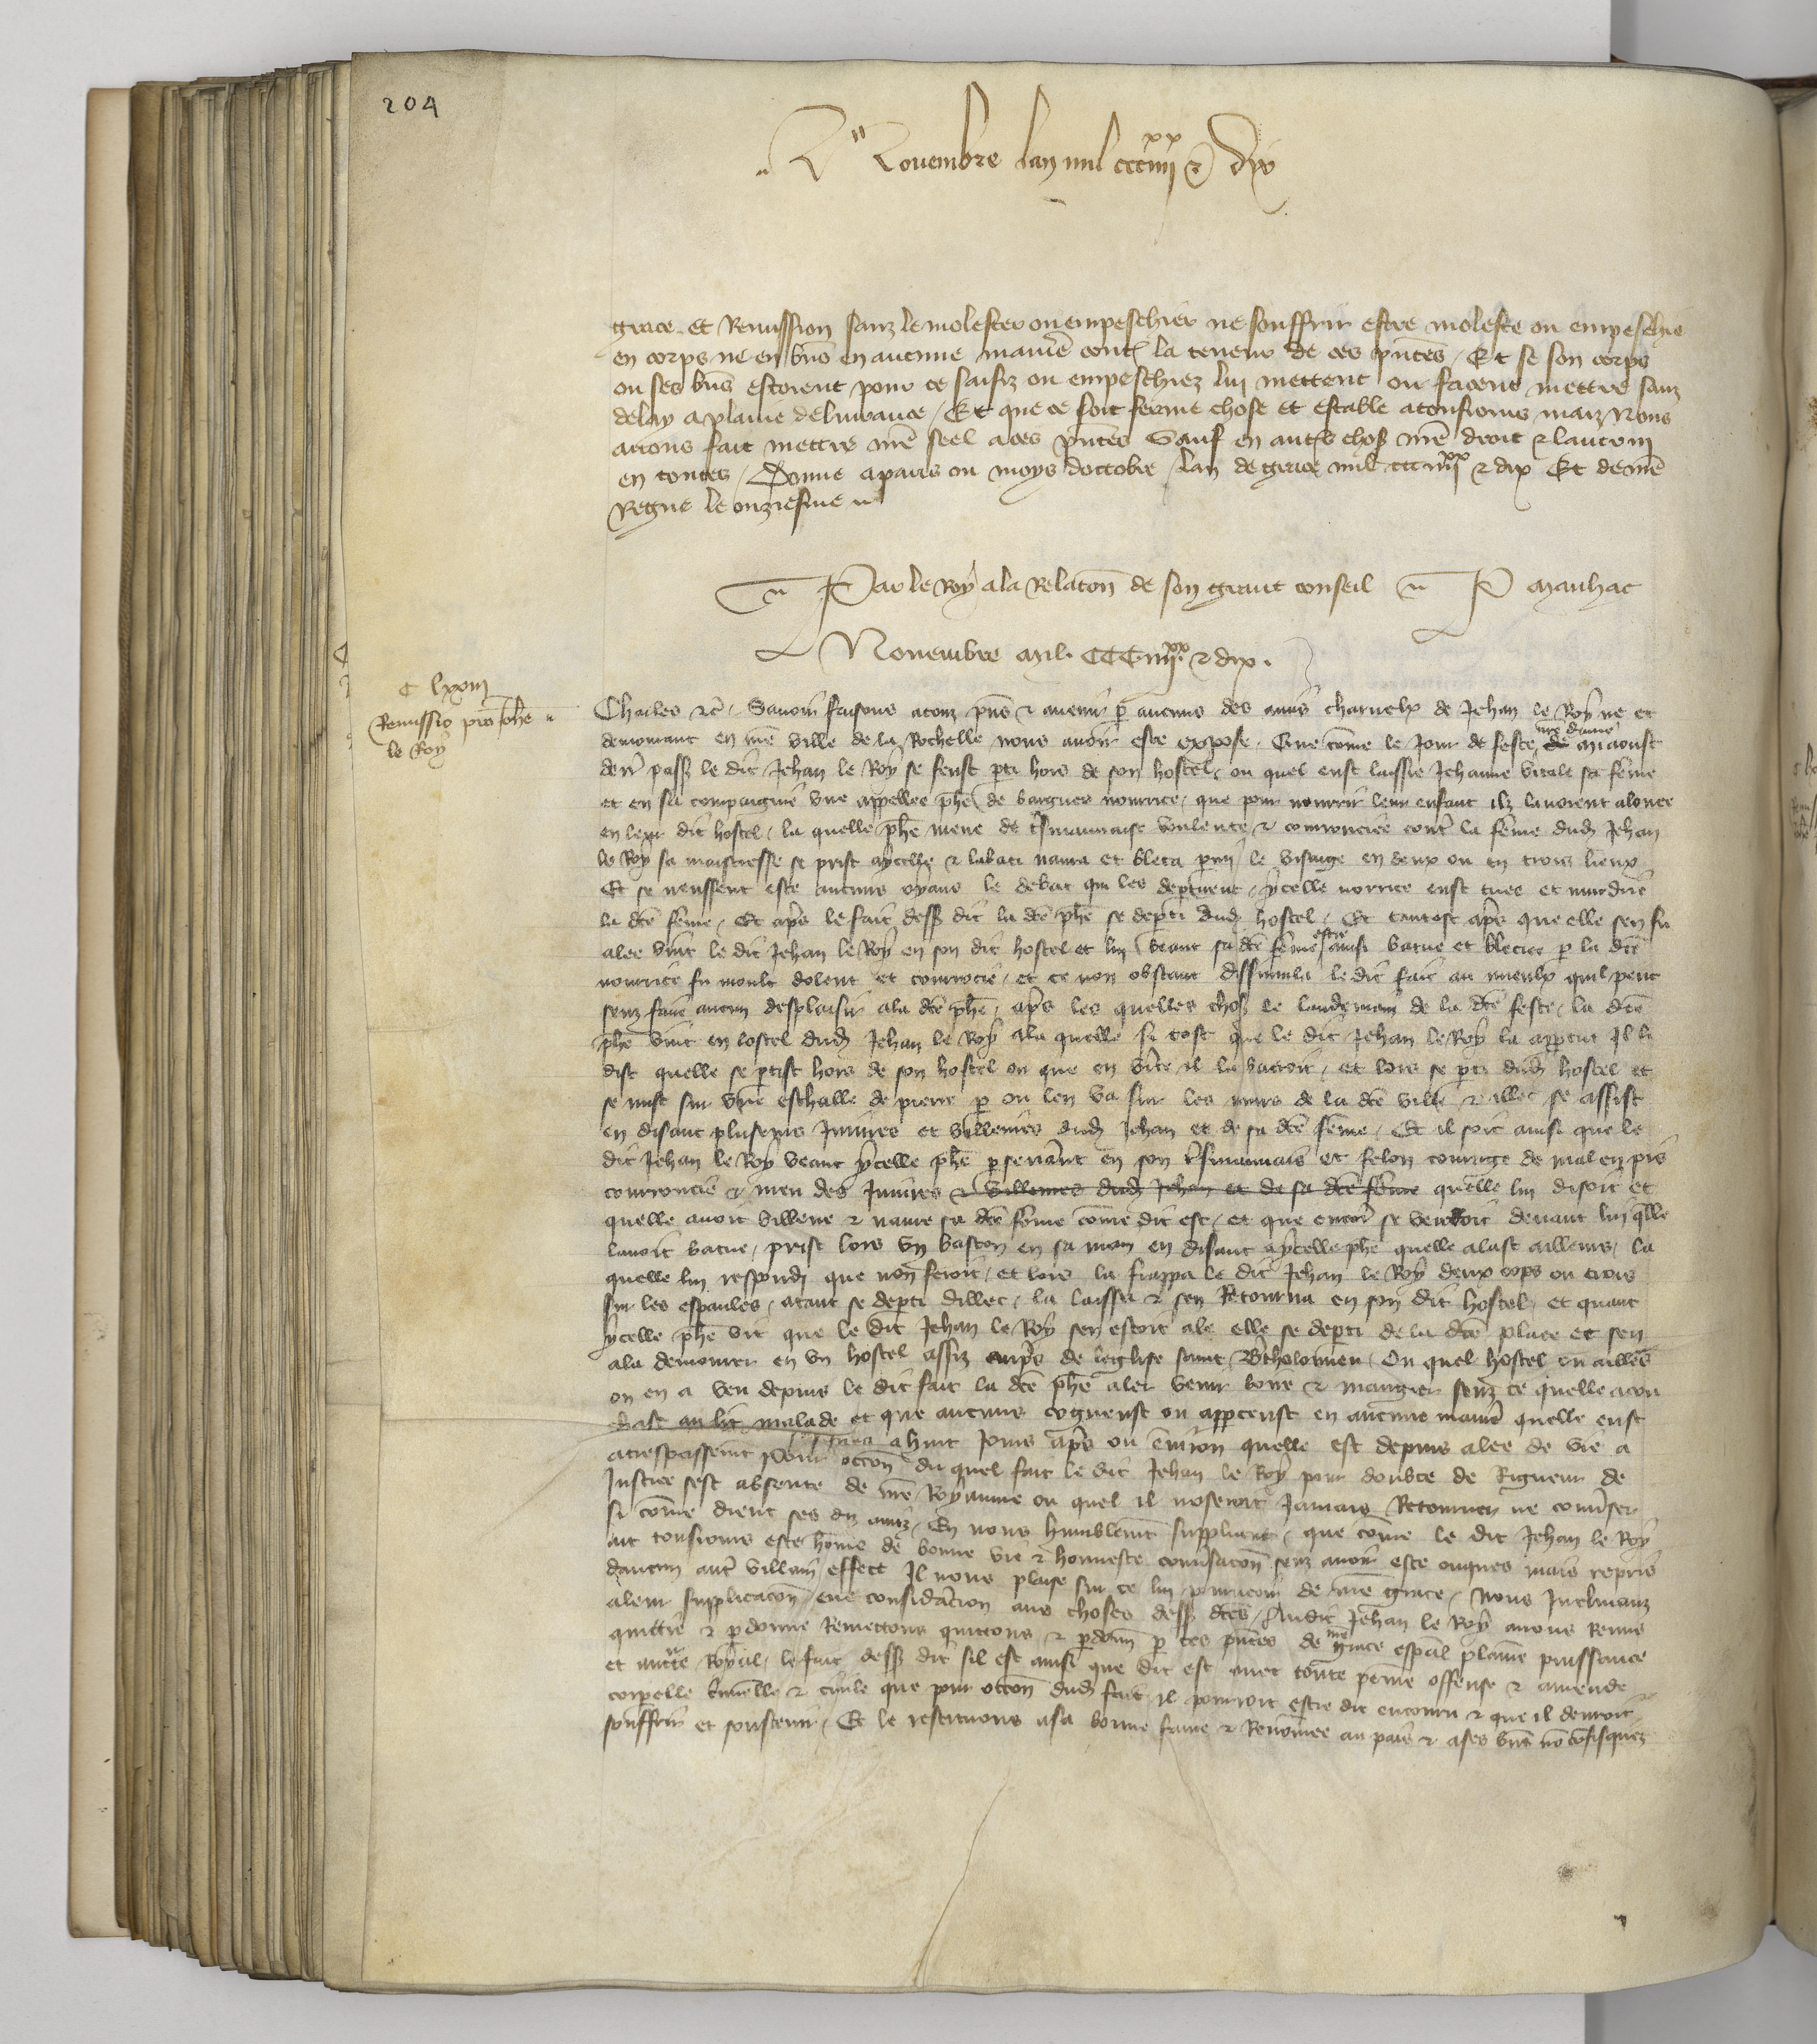 204
Novembre lan mil ccc iiii xx & dix
grace et Remission sanz le molester ou empeschier ne souffrir estre moleste ou empeschie
en corps ne en bñs en aucune maniẽ contr̃ la teneur de ces pñtes / Et se son corps
ou ses bñs estoient pour ce saisiz ou empeschiez lui mettent ou facent mettre sanz
delay a plaine delivrance / Et que ce soit ferme chose et estable a tousiours maiz Nous
avons fait mettre nr̃e seel a ces pñtes Sauf en autrs choss nr̃e droit & lautrui
en toutes / Donne a paris ou moys doctobre / lan de grace mil ccc iiii xx & dix Et de nr̃e
Regne le onziesme
Par le Roy a la Relacõn de son grant conseil P Manhac
Novembre Mil. CCC iiii xx & dix.
C lxxiii
Remissio pro Johẽ
le Roy
Charles &c̃ / Savoir faisons a touz pñs & avenir p̃ aucuns des amis charnelx de Jehan le Roy ne et
demourant en nr̃e ville de la Rochelle nous avoir este expose / Que cõme le Jour de feste nr̃e dame de mi aoust
derr̃ pass̃ le dit Jehan le Roy se feust p̃ti hors de son hostel / ou quel eust laissie Jehanne vitale sa fẽme
et en sa compaignie une appellee p̃hẽ de bargues nourrice / que pour nourrir leur enfant ilz lavoient alouee
en leur dit hostel / la quelle p̃hẽ mene de tr̃smauvaise voulente & courouciee contr̃ la fẽme dud̃ Jehan
le Roy sa maistresse se prist a ycelle & la bati navra et bleca parmi le visaige en deux ou en trois lieux
Et se neussent este aucuns oyans le debat qui les dep̃tirent / ycelle norrice eust tuee et murdrie
la dc̃e fẽme / Et ap̃s le fait dess̃ dit la dc̃e p̃hẽ se dep̃ti dud̃ hostel / Et tantost ap̃s que elle sen fu
alee vint le dit Jehan le Roy en son dit hostel et lui veant sa dc̃e fẽme estre ainsi batue et blecee p̃ la dc̃e
nourrice fu moult dolent et courrocie / et ce non obstant dissimula le dit fait au mieulx quil peut
senz faire aucun desplaisir a la dc̃e p̃hẽ / ap̃s les quelles choss̃ le landemain de la dc̃e feste / la dc̃e
p̃hẽ vint en lostel dud̃ Jehan le Roy a la quelle si tost que le dit Jehan le Roy la apperceut Il li
dist quelle se p̃tist hors de son hostel ou que en vr̃te il la batroit / et lors se p̃ti dud̃ hostel et
se mist sur une eschalle de pierre p̃ ou len va sur les murs de la dc̃e ville & illec se assist
en disant pluseurs Injures et villenies dud̃ Jehan et de sa dc̃e fẽme / Et il soit ainsi que le
dit Jehan le Roy veant ycelle p̃hẽ p̃severant en son tr̃smauvais et felon courage de mal en pis
courroucie & meu des Injures & villenies dud̃ Jehan et de sa dc̃e fẽme quelle lui disoit et
quelle avoit villene & navre sa dc̃e fẽme cõme dit est / et que encor̃ se vendoit devant lui q̃lle
lavoit batue / prist lors un baston en sa main en disant a ycelle p̃hẽ quelle alast ailleurs / la
quelle lui respondi que non feroit / et lors la frappa le dit Jehan le Roy deux cops ou trois
sur les espaules / atant se dep̃ti dillec / la laissa & sen Retourna en son dit hostel / et quant
ycelle p̃hẽ vit que le dit Jehan le Roy sen estoit ale elle se dep̃ti de la dc̃e place et sen
ala demourer en un hostel assiz emp̃s de leglise saint Br̃tholomieu / Ou quel hostel ou ailleurs
on en a veu depuis le dit fait la dc̃e p̃hẽ aler venir boire & mangier senz ce quelle acou
chast au lit malade et que aucuns cogneust ou apperceust en aucune manir̃e quelle eust
a huit Jours ap̃s ou environ quelle est depuis alee de vie a
trespassement Pour occõn du quel fait le dit Jehan le Roy pour doubte de Rigueur de
Justice sest absente de nr̃e Royaume ou quel il noseroit Jamais Retourner ne convr̃ser
si cõme dient ses diz amis / En nous humblement suppliant / que cõme le dit Jehan le Roy
ait tousiours este hõme de bonne vie & honneste convr̃sacõn senz avoir este onques mais repris
daucun autr̃ villain effect Il nous plaise sur ce lui pourveoir de nr̃e grace / Nous Inclinanz
a leur supplicacõn / eue consideracion aus choses dess̃ dc̃es / Audit Jehan le Roy avons Remis
quittie & p̃donne Remettons quittons & p̃donñ p̃ ces pñtes de nr̃e grace esp̃al plainẽ puissance
et auctr̃te Royal / le fait dess̃ dit sil est ainsi que dit est avec toute peine offense & amende
corporelle crimelle & civile que pour occõn dud̃ fait il pourroit estre dit encouru & que il devroit
souffrir et soustenir / Et le restituons a sa bonne fame & Renommee au pais & a ses bñs nõ confisquez